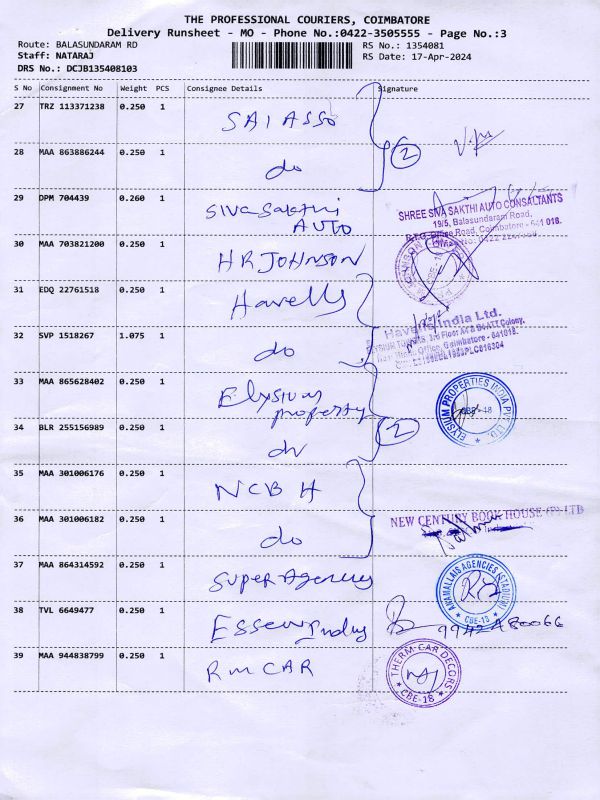 THE PROFESSIONAL COURIERS, COIMBATORE
Delivery Runsheet - MO - Phone No.:0422-3505555 - Page No.:3
Route: BALASUNDARAM RD
RS No.: 1354081
Staff: NATARAJ
RS Date: 17-Apr-2024
DRS No.: DCJB135408103
S No Consignment No Weight PCS Consignee Details Signature
27 TRZ 113371238 0.250 1 SAI ASSO
28 MAA 863886244 0.250 1 do 2
29 DPM 704439 0.260 1 Sivasakthi AUTO
SHREE SIVA SAKTHI AUTO CONSULTANTS
19/5, Balasundaram Road,
Road, Coimbatore - 641 018.
30 MAA 703821200 0.250 1 HR JOHNSON
31 EDQ 22761518 0.250 1 Havells
Havells India Ltd.
32 SVP 1518267 1.075 1 do
33 MAA 865628402 0.250 1 Elysium property
ELYSIUM PROPERTIES INDIA PVT LTD.
CBE-18
34 BLR 255156989 0.250 1 do 2
35 MAA 301006176 0.250 1 NCBH
36 MAA 301006182 0.250 1 do
NEW CENTURY BOOK HOUSE (P) LTD
37 MAA 864314592 0.250 1 Super Agency
ANAMALLAIS AGENCIES (STADIUM)
CBE-18
38 TVL 6649477 0.250 1 Essen Indus
39 MAA 944838799 0.250 1 RM CAR
THERM CAR DECORS
CBE-18